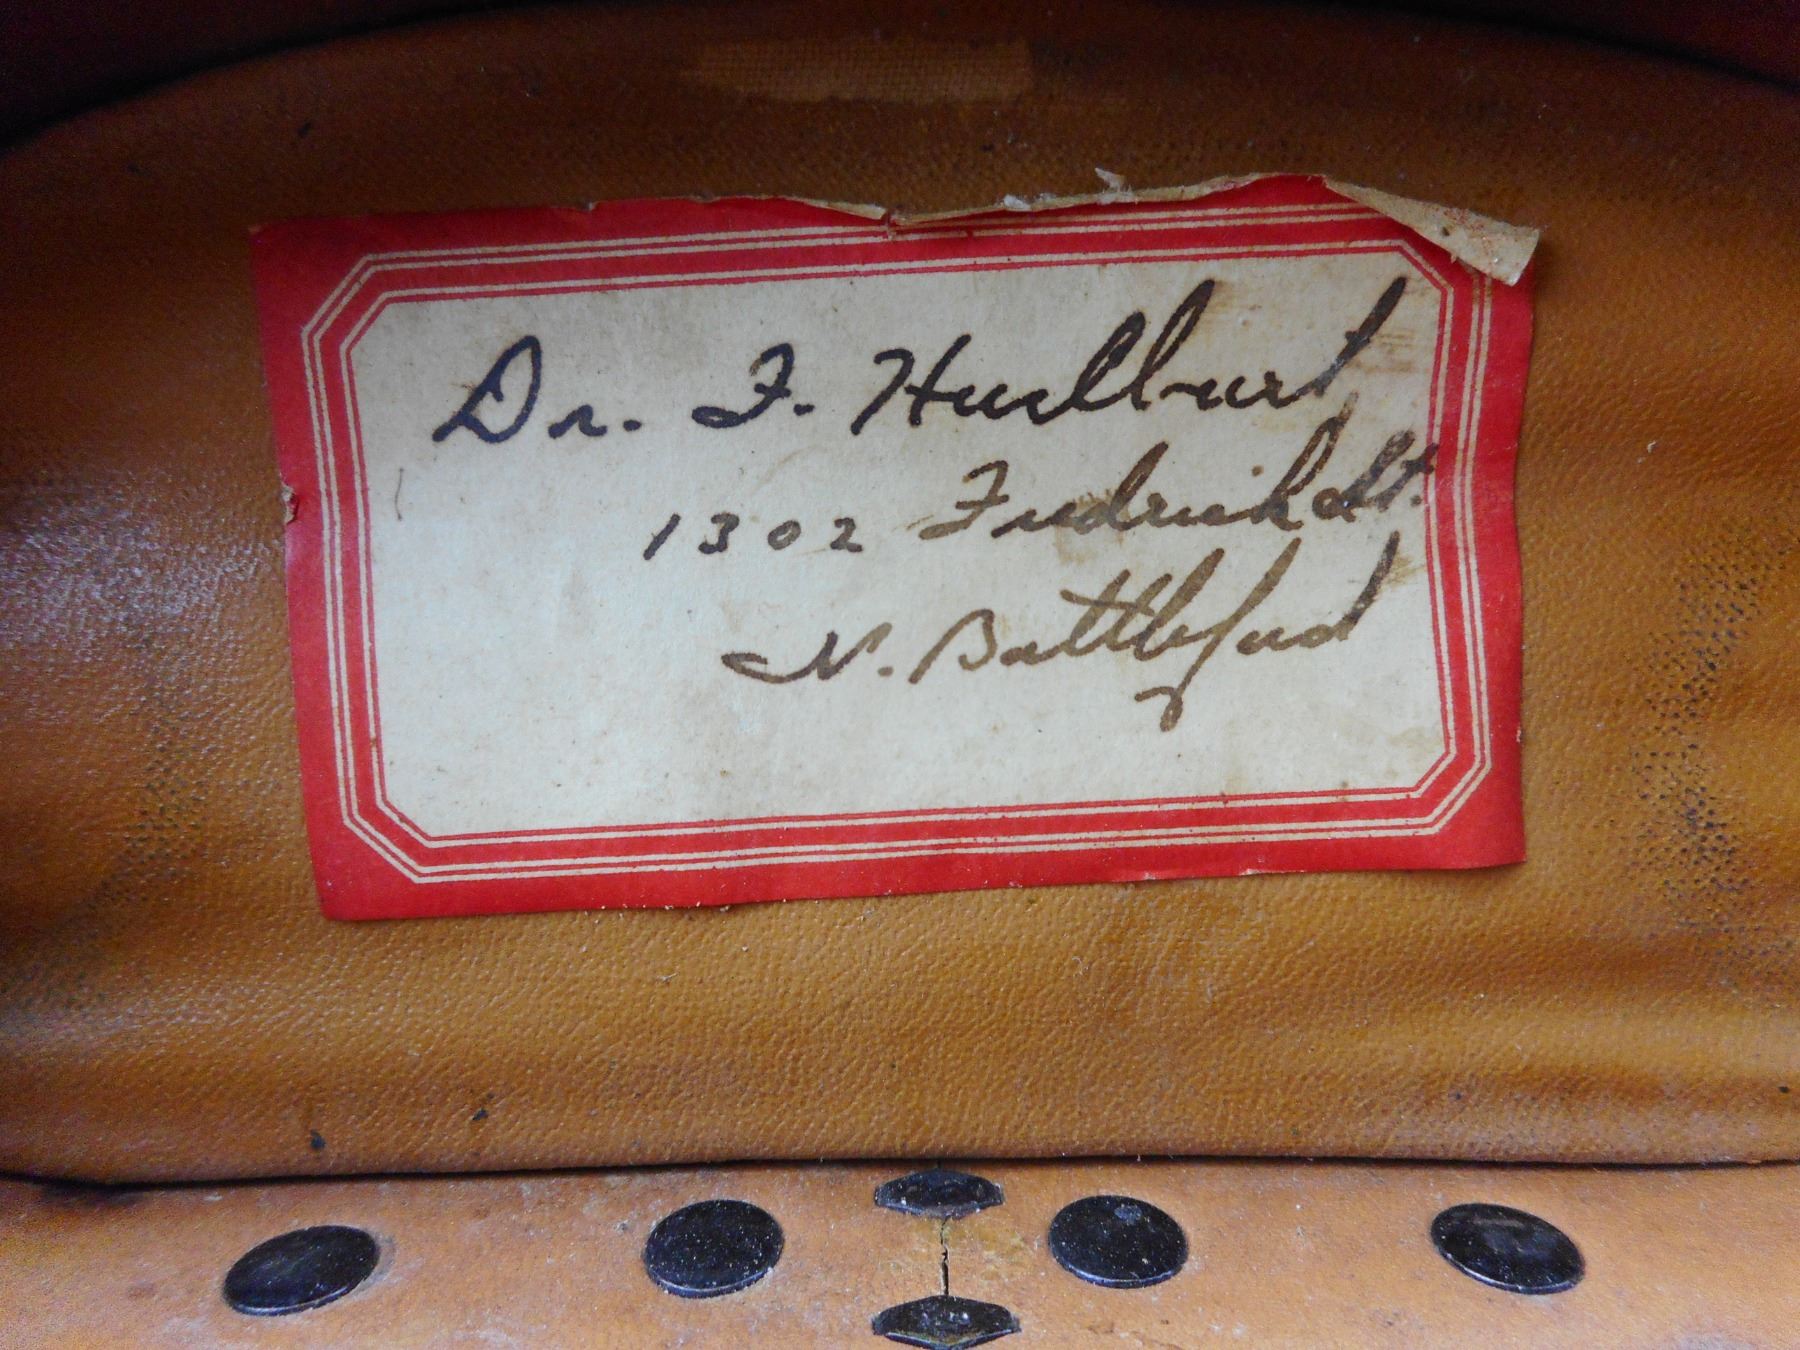 Dr. F. Hurlburt
1302 Fredrick St.
N. Battleford